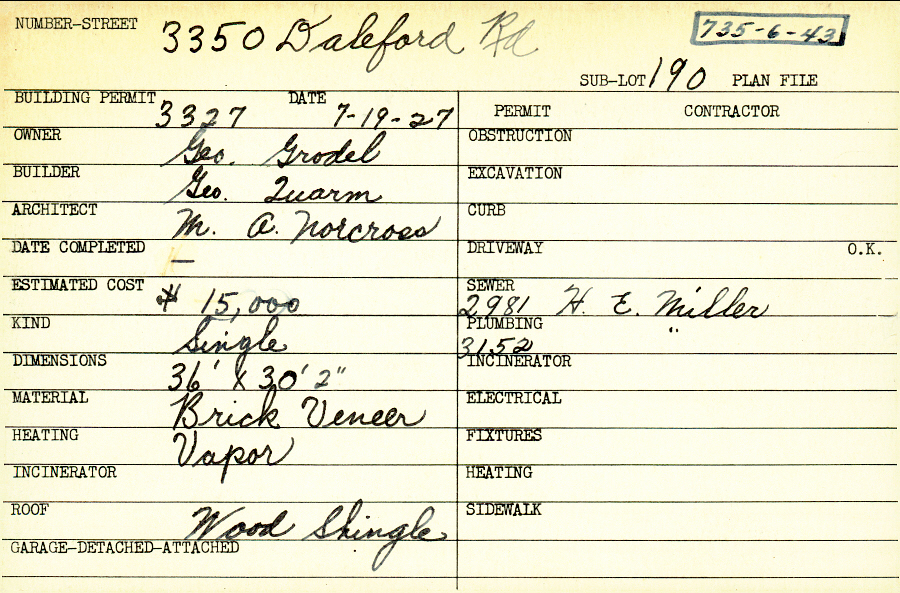 NUMBER-STREET 3350 Daleford Rd 735-6-43
SUB-LOT 190 PLAN FILE
BUILDING PERMIT 3327 DATE 7-19-27 PERMIT CONTRACTOR
OWNER Geo. Grodel OBSTRUCTION
BUILDER Geo. Quarm EXCAVATION
ARCHITECT M. A. Norcross CURB
DATE COMPLETED — DRIVEWAY O.K.
ESTIMATED COST $ 15,000 SEWER 2981 H. E. Miller
KIND Single PLUMBING 3152 "
DIMENSIONS 36' X 30' 2" INCINERATOR
MATERIAL Brick Veneer ELECTRICAL
HEATING Vapor FIXTURES
INCINERATOR HEATING
ROOF Wood Shingle SIDEWALK
GARAGE-DETACHED-ATTACHED